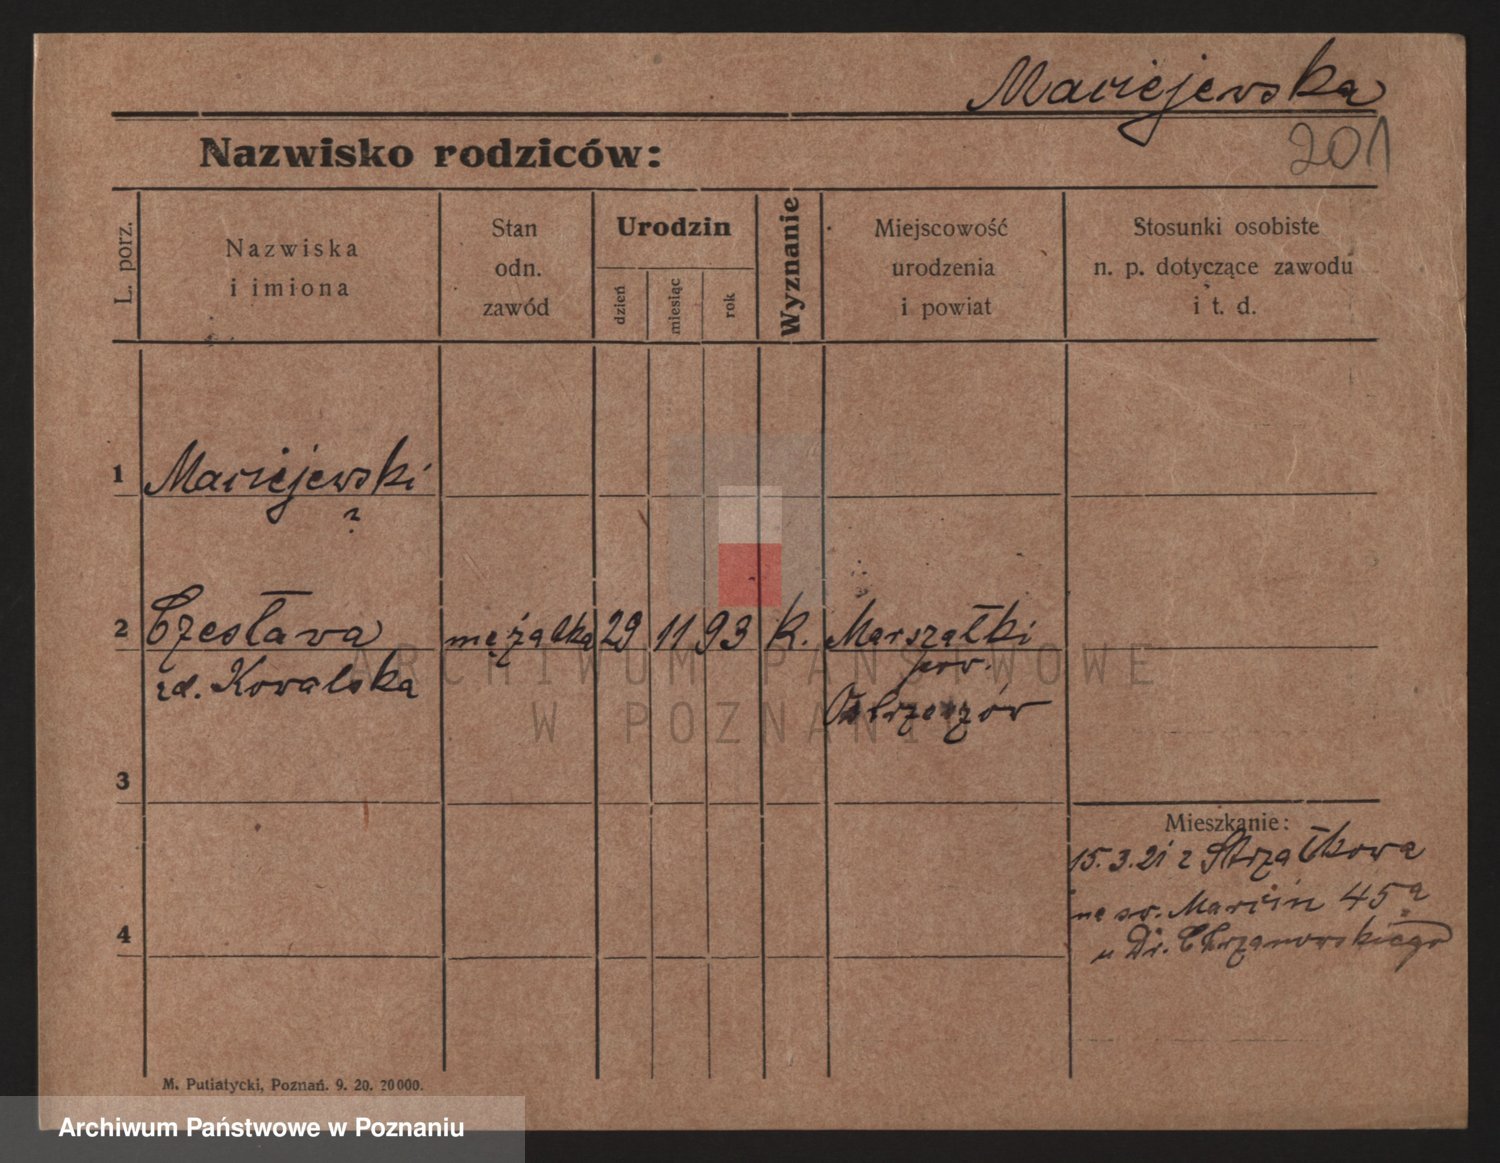 Maciejewska
201
Nazwisko rodziców:
L. porz.
Nazwiska
i imiona
Stan
odn.
zawód
Urodzin
dzień
miesiąc
rok
Wyznanie
Miejscowość
urodzenia
i powiat
Stosunki osobiste
n. p. dotyczące zawodu
i t. d.
1 Maciejewski
?
2 Czesława mężatka 29 11 93 k. Marszałki
zd. Kowalska pow.
Ostrzeszów
3
4
Mieszkanie:
15.3.21 z Strzałkowa
na św. Marcin 45a
u Dr. Chrzanowskiego
M. Putiatycki, Poznań. 9. 20. 20000.
ARCHIWUM PAŃSTWOWE
W POZNANIU
Archiwum Państwowe w Poznaniu